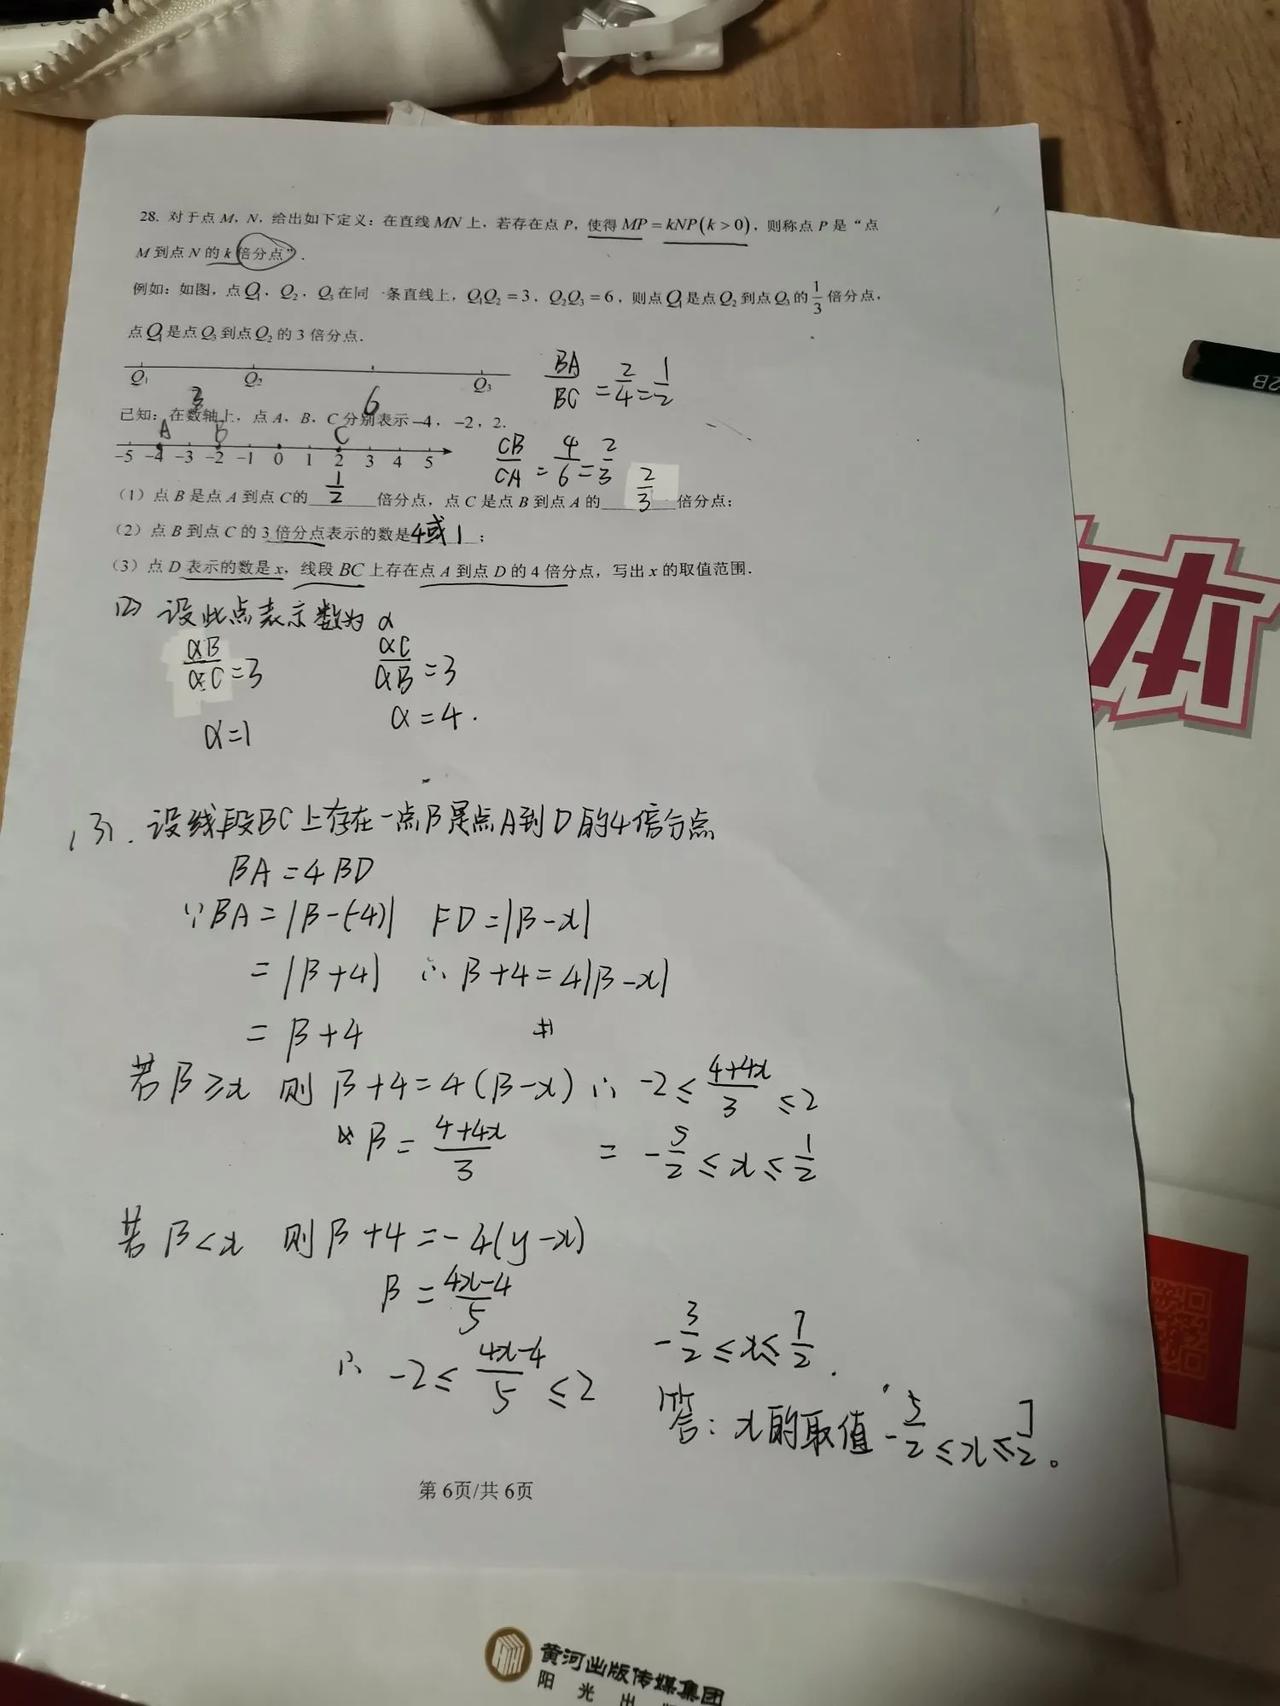 28. 对于点 M，N，给出如下定义：在直线 MN 上，若存在点 P，使得 MP = kNP(k > 0)，则称点 P 是“点
M 到点 N 的 k 倍分点”.
例如：如图，点 Q₁、Q₂、Q₃ 在同一条直线上，Q₁Q₂ = 3，Q₂Q₃ = 6，则点 Q₁ 是点 Q₂ 到点 Q₃ 的 1/3 倍分点，
点 Q₁ 是点 Q₃ 到点 Q₂ 的 3 倍分点.
Q₁ Q₂ Q₃
3 6
BA/BC = 2/4 = 1/2
已知：在数轴上，点 A、B、C 分别表示 −4，−2，2.
A B C
−5 −4 −3 −2 −1 0 1 2 3 4 5
CB/CA = 4/6 = 2/3
（1）点 B 是点 A 到点 C的 1/2 倍分点，点 C 是点 B 到点 A 的 2/3 倍分点；
（2）点 B 到点 C 的 3 倍分点表示的数是4或1；
（3）点 D 表示的数是 x，线段 BC 上存在点 A 到点 D 的 4 倍分点，写出 x 的取值范围.
(2) 设此点表示数为 α
αB/αC = 3 αC/αB = 3
α=1 α=4.
(3). 设线段BC上存在一点β是点A到D的4倍分点
βA=4βD
∵βA=|β-(-4)| FD=|β-x|
=|β+4| ∴ β+4=4|β-x|
=β+4
若β≥x 则 β+4=4(β-x) ∴ -2≤(4+4x)/3≤2
β=(4+4x)/3 = -5/2≤x≤1/2
若β<x 则β+4=-4(y-x)
β=(4x-4)/5
∴ -2≤(4x-4)/5≤2 -3/2≤x≤7/2.
答：x的取值 -5/2≤x≤7/2。
第 6页/共 6页
本
2B
黄河出版传媒集团
阳 光 出